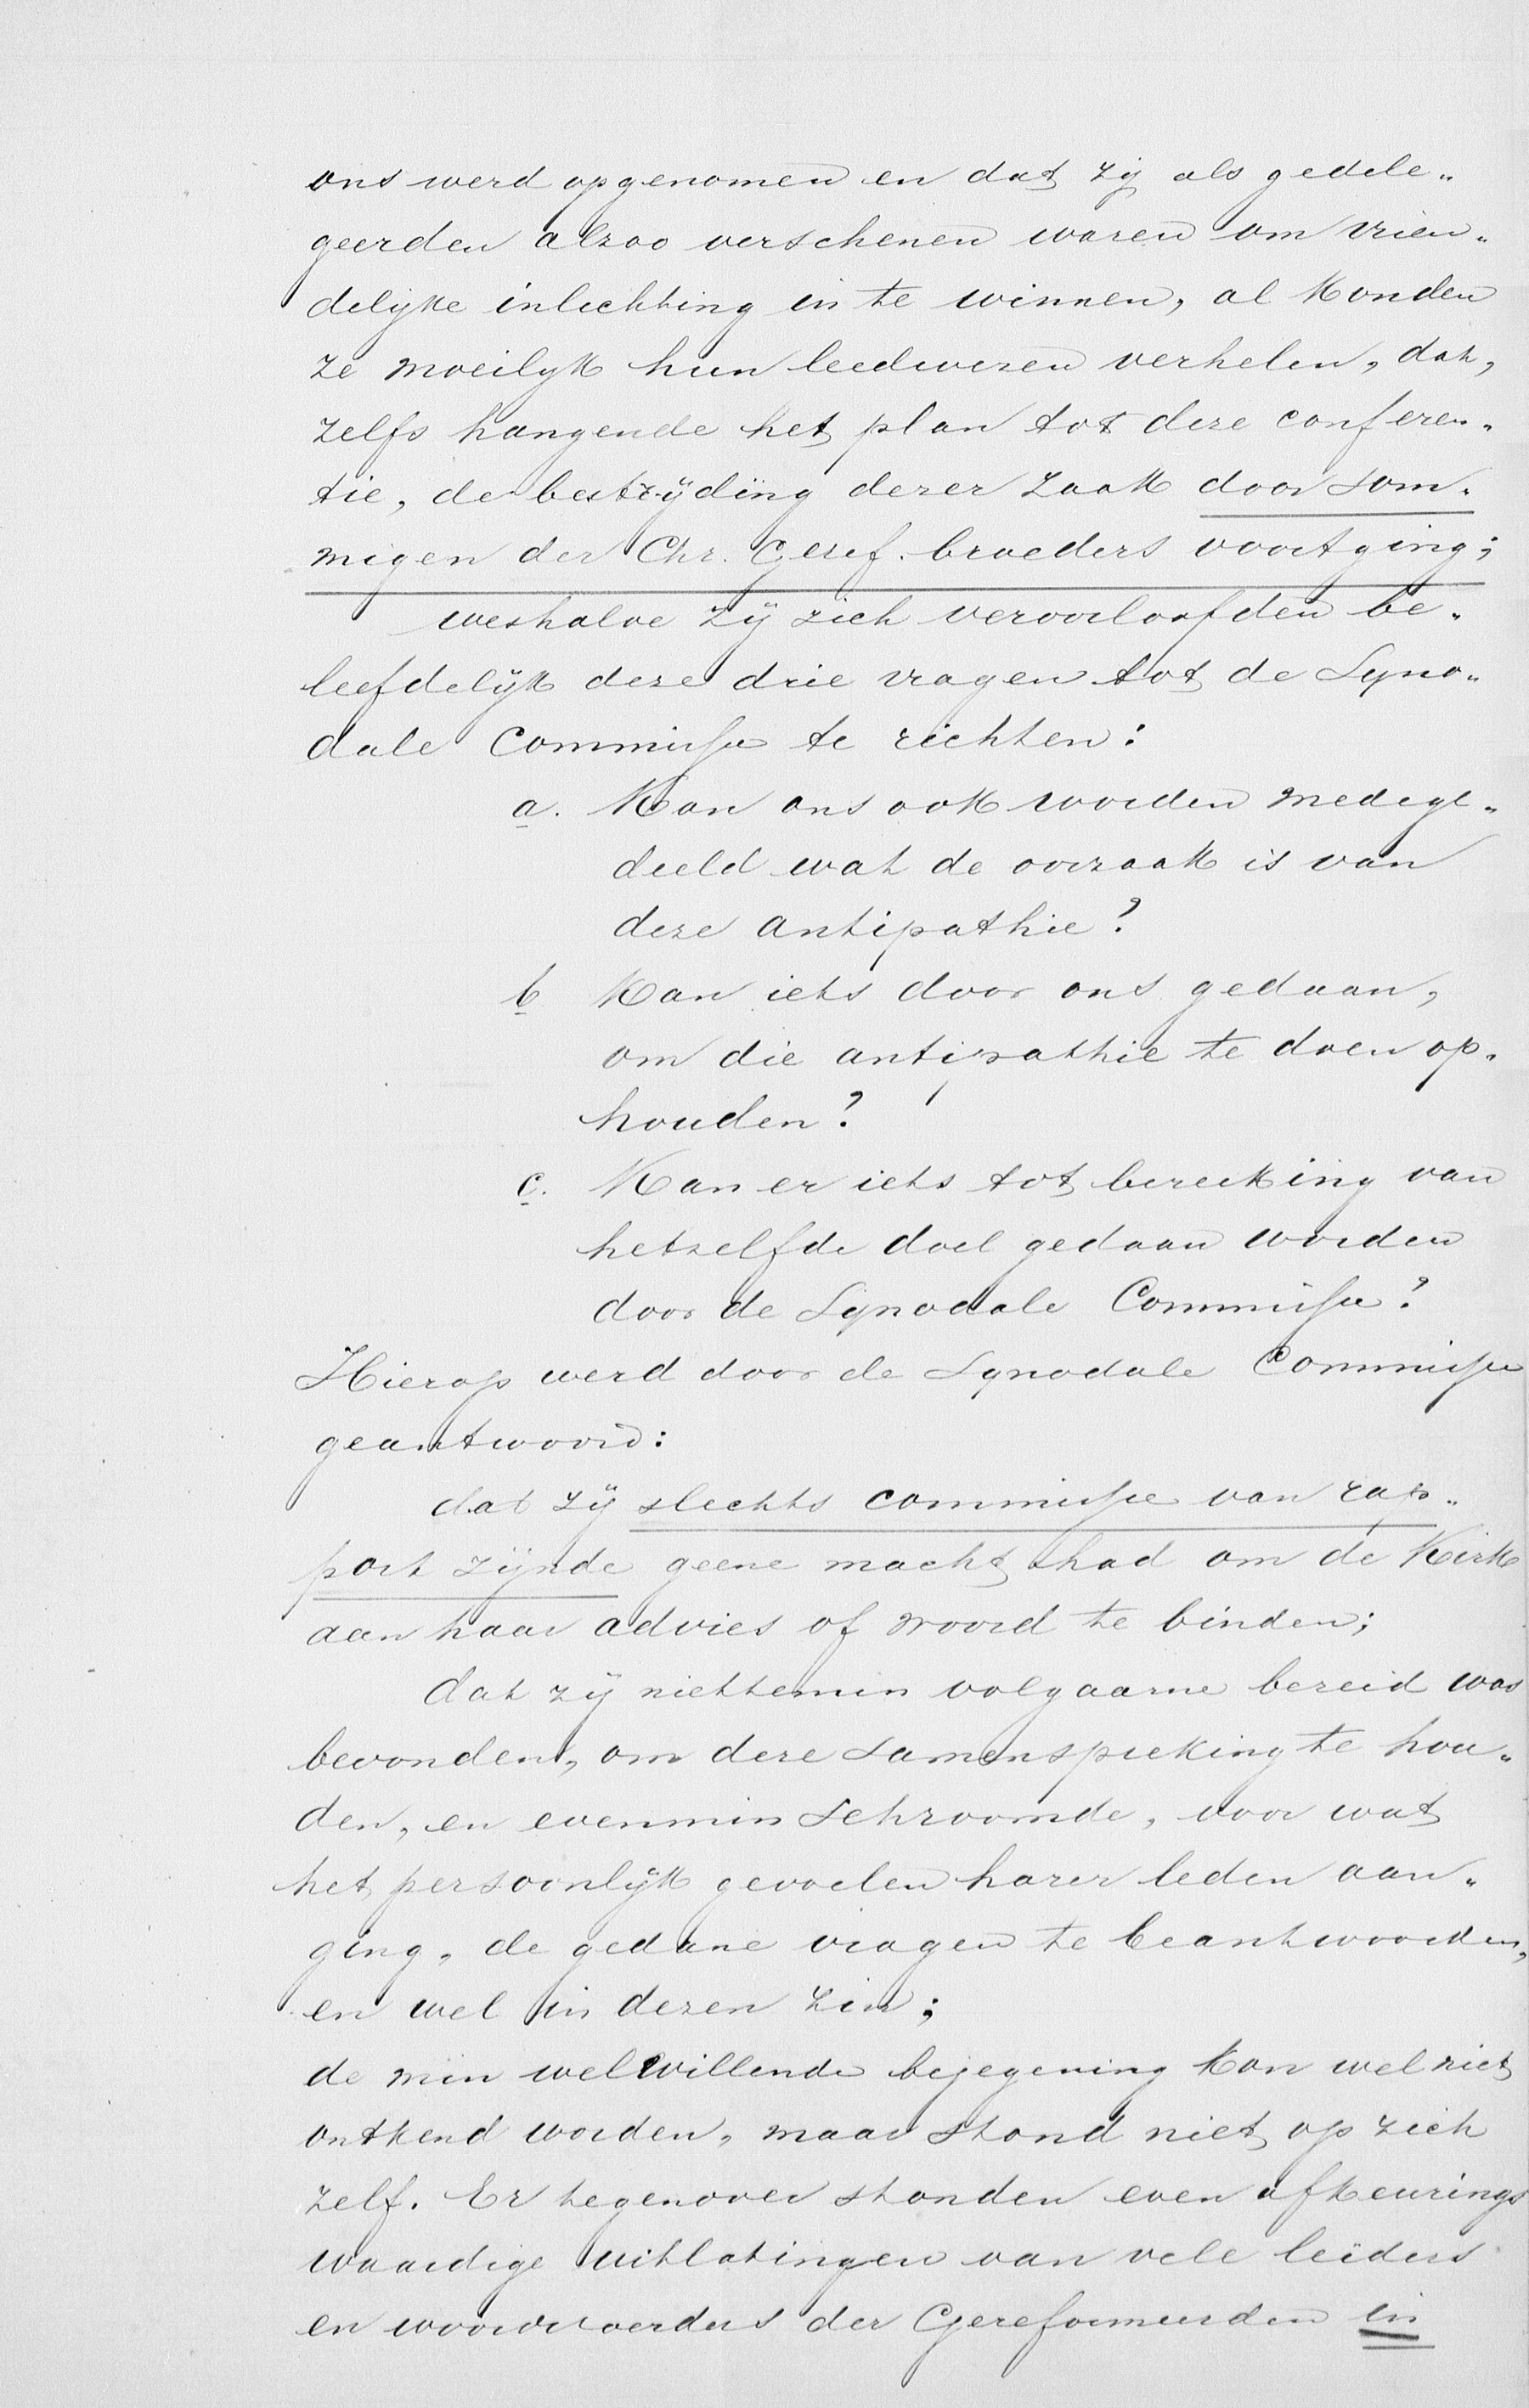 ons werd opgenomen en dat zij als gedele„
geerden alzoo verschenen waren om vrien„
delijke inlichting in te winnen, al konden
ze moeilijk hun leedwezen verhelen, dat,
zelfs hangende het plan tot deze conferen„
tie, de bestrijding dezer zaak door som„
migen der Chr. Geref. broeders voortging;
weshalve zij zich veroorloofden be„
leefdelijk deze drie vragen tot de Syno„
dale Commissie te richten:
a. Kan ons ook worden medege„
deeld wat de oorzaak is van
deze antipathie?
b Kan iets door ons gedaan,
om die antipathie te doen op„
houden?
c. Kan er iets tot bereiking van
hetzelfde doel gedaan worden
door de Synodale Commissie?
Hierop werd door de Synodale Commissie
geantwoord:
dat zij slechts commissie van rap„
port zijnde geene macht had om de Kerk
aan haar advies of woord te binden;
dat zij niettemin volgaarne bereid was
bevonden, om deze samenspreking te hou„
den, en evenmin schroomde, voor wat
het persoonlijk gevoelen harer leden aan„
ging, de gedane vragen te beantwoorden,
en wel in dezen zin;
de min welwillende bejegening kon wel niet
ontkend worden, maar stond niet op zich
zelf. Er tegenover stonden even afkeurings
waardige uitlatingen van vele leiders
en woordvoerders der Gereformeerden in